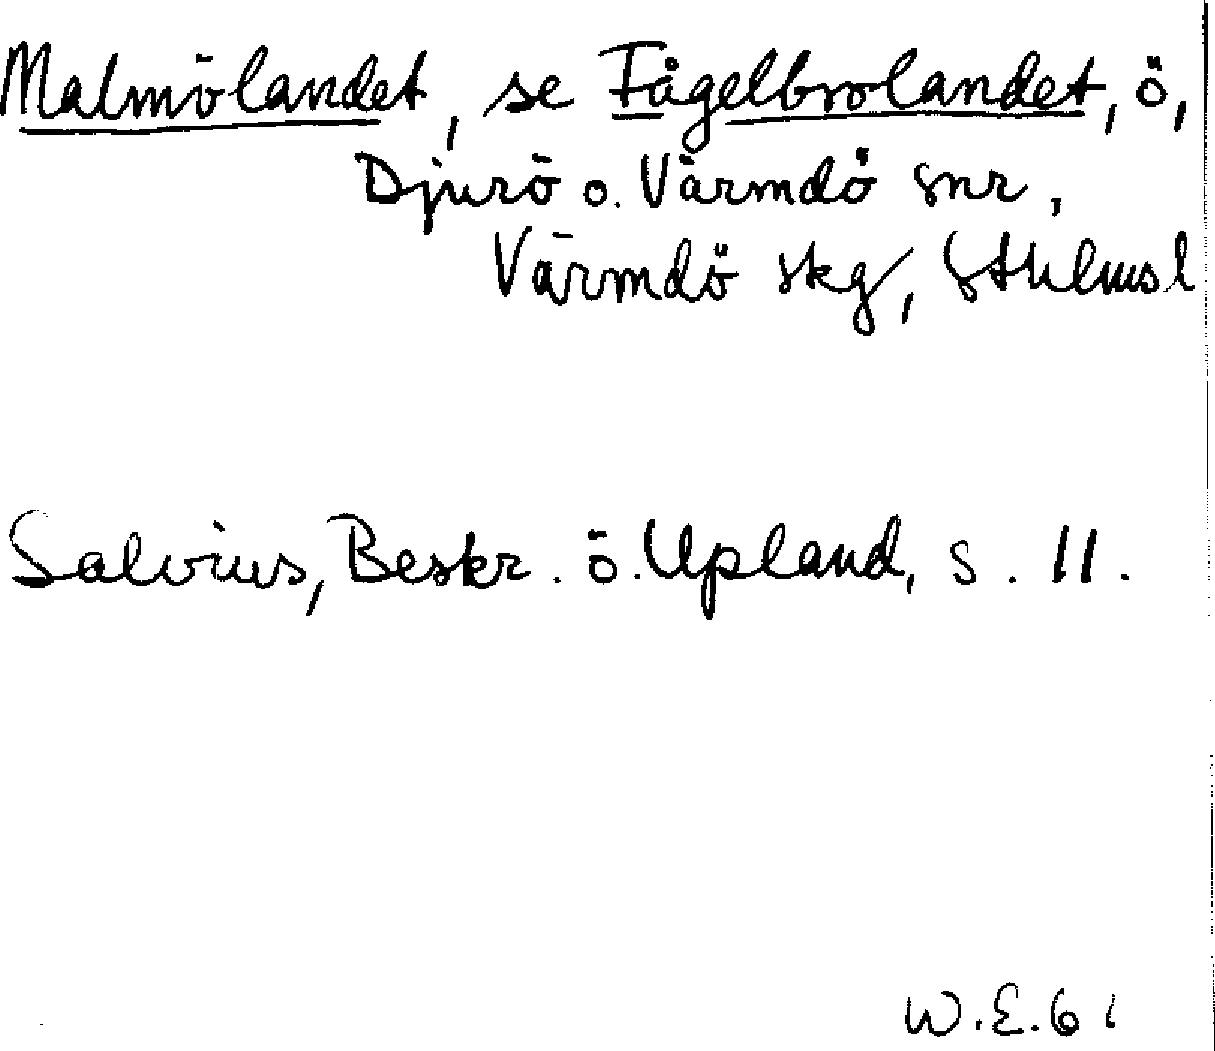 Malmölandet, se Fågelbrolandet, ö,
Djurö o. Värmdö snr,
Värmdö skg, Sthlmsl
Salvius, Beskr. ö. Upland, s. 11.
W.E.61